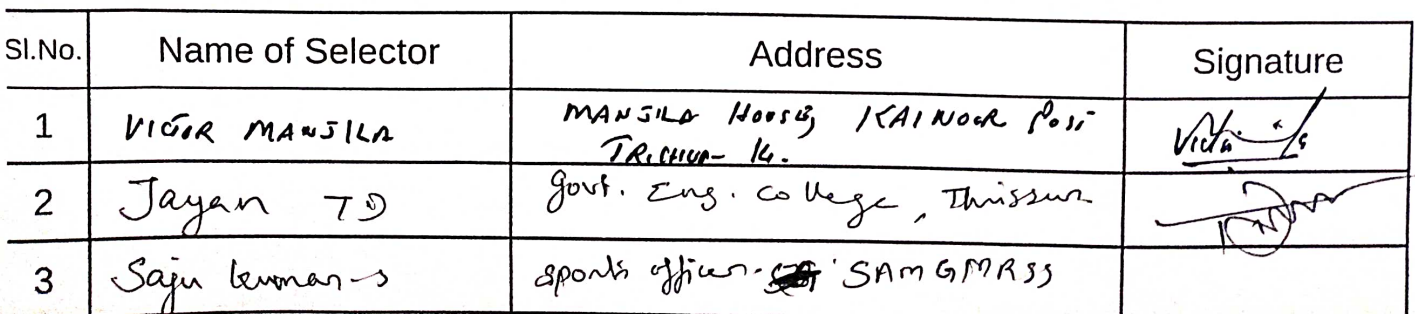 Sl.No. Name of Selector Address Signature
1 VICTOR MANJILA MANJILA House, KAINOOR Post
TRICHUR- 14.
2 Jayan TD Govt. Eng. College, Thrissur
3 Saju kumar-s sports officer- SAMGMRSS